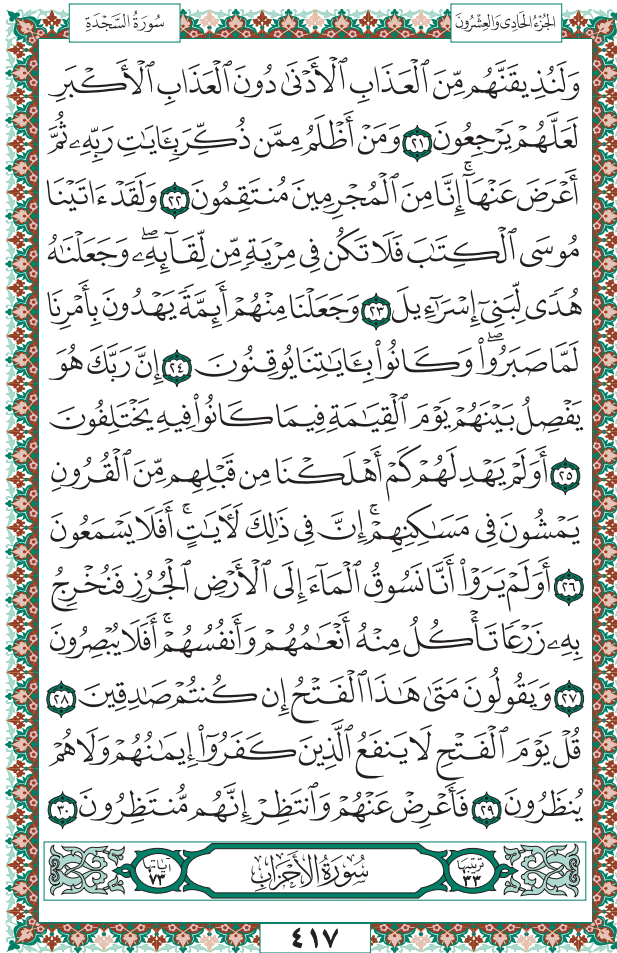 سُورَةُ السَّجْدَةِ
الجُزْءُ الحَادِى وَالعِشْرُونَ
وَلَنُذِيقَنَّهُم مِّنَ ٱلْعَذَابِ ٱلْأَدْنَىٰ دُونَ ٱلْعَذَابِ ٱلْأَكْبَرِ
لَعَلَّهُمْ يَرْجِعُونَ ٢١ وَمَنْ أَظْلَمُ مِمَّن ذُكِّرَ بِـَٔايَٰتِ رَبِّهِۦ ثُمَّ
أَعْرَضَ عَنْهَآ ۚ إِنَّا مِنَ ٱلْمُجْرِمِينَ مُنتَقِمُونَ ٢٢ وَلَقَدْ ءَاتَيْنَا
مُوسَى ٱلْكِتَٰبَ فَلَا تَكُن فِى مِرْيَةٍ مِّن لِّقَآئِهِۦ ۖ وَجَعَلْنَٰهُ
هُدًى لِّبَنِىٓ إِسْرَٰٓءِيلَ ٢٣ وَجَعَلْنَا مِنْهُمْ أَئِمَّةً يَهْدُونَ بِأَمْرِنَا
لَمَّا صَبَرُوا۟ ۖ وَكَانُوا۟ بِـَٔايَٰتِنَا يُوقِنُونَ ٢٤ إِنَّ رَبَّكَ هُوَ
يَفْصِلُ بَيْنَهُمْ يَوْمَ ٱلْقِيَٰمَةِ فِيمَا كَانُوا۟ فِيهِ يَخْتَلِفُونَ
٢٥ أَوَلَمْ يَهْدِ لَهُمْ كَمْ أَهْلَكْنَا مِن قَبْلِهِم مِّنَ ٱلْقُرُونِ
يَمْشُونَ فِى مَسَٰكِنِهِمْ ۚ إِنَّ فِى ذَٰلِكَ لَـَٔايَٰتٍ ۖ أَفَلَا يَسْمَعُونَ
٢٦ أَوَلَمْ يَرَوْا۟ أَنَّا نَسُوقُ ٱلْمَآءَ إِلَى ٱلْأَرْضِ ٱلْجُرُزِ فَنُخْرِجُ
بِهِۦ زَرْعًا تَأْكُلُ مِنْهُ أَنْعَٰمُهُمْ وَأَنفُسُهُمْ ۚ أَفَلَا يُبْصِرُونَ
٢٧ وَيَقُولُونَ مَتَىٰ هَٰذَا ٱلْفَتْحُ إِن كُنتُمْ صَٰدِقِينَ ٢٨
قُلْ يَوْمَ ٱلْفَتْحِ لَا يَنفَعُ ٱلَّذِينَ كَفَرُوٓا۟ إِيمَٰنُهُمْ وَلَا هُمْ
يُنظَرُونَ ٢٩ فَأَعْرِضْ عَنْهُمْ وَٱنتَظِرْ إِنَّهُم مُّنتَظِرُونَ ٣٠
ترتيبها ٣٣ سُورَةُ الأَحْزَابِ آياتها ٧٣
٤١٧